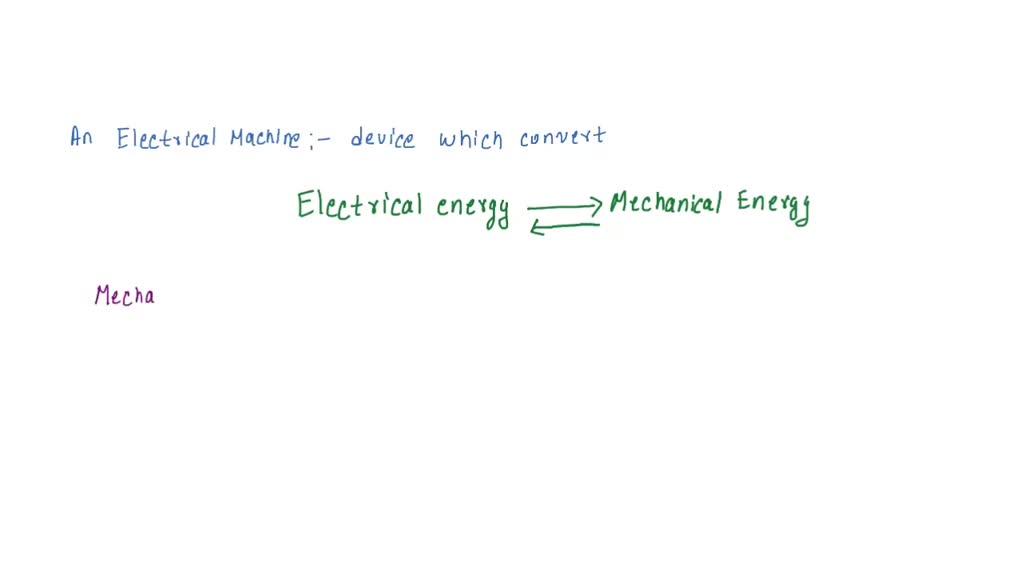 An Electrical Machine :- device which convert
Electrical energy ⇄ Mechanical Energy
Mecha